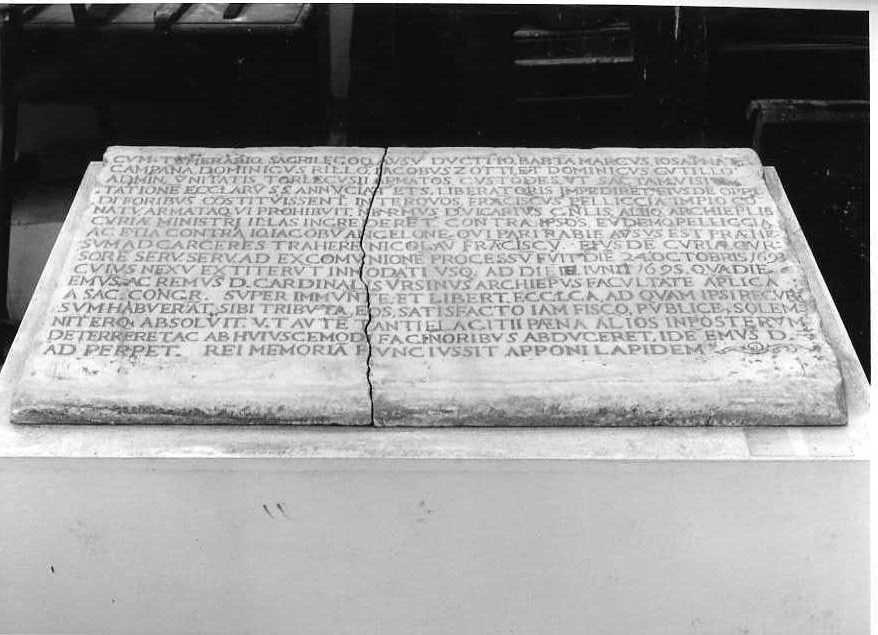 CVM TEMERARIO, SACRILEGOQ AVSV DVCTI IO. BABTA MARCVS IOSAPHAT
CAMPANA DOMINICVS RILLO IACOBVS ZOTTI, ET DOMINICVS CVTILLO
ADMIN. VNITATIS TORLECVSII ARMATOS CVSTODES VT SACTAM VISI
TATIONE ECCLARV SS. ANNVCIAT ET S. LIBERATORIS IMPEDIRET, EIVSDE OPPI
DI FORIBVS COSTITVISSENT INTER QVOS FRACISCVS PELLICCIA IMPIO CO
NATV ARMATAQ VI PROHIBVIT NE RMVS D. VICARIVS GNLIS ALIIQ ARCHIEPLIS
CVRIÆ MINISTRI ILLAS INGREDERET CONTRA IPSOS EVDEMQ PELLICCIA
AC ETIA CONTRA IOIACOBV ARCELLONE, QVI PARI RABIE AVSVS EST TRAHI
SVM AD CARCERES TRAHERE NICOLAV FRACISCV EIVSDE CVRIÆ CVR
SORE SERV. SERV. AD EXCOMVNIONE PROCESSV FVIT DIE 24 OCTOBRIS 1693
CVIVS NEXV EXTITERVT INNODATI VSQ. AD DIE IVNII 1695 QVA DIE
EMVS, AC REMVS D. CARDINALIS VRSINVS ARCHIEPVS FACVLTATE APLICA
A SAC. CONGR. SVPER IMMVNITE, ET LIBERT. ECCLCA, AD QVAM IPSI RECVR
SVM HABVERAT, SIBI TRIBVTA, EOS, SATISFACTO IAM FISCO, PVBLICE, SOLEM
NITERQ. ABSOLVIT. VT AVTE TANTI ELACITII PÆNA ALIOS IN POSTERVM
DETERRERET AC AB HVIVSCEMODI FACINORIBVS ABDVCERET, IDE EMVS D.
AD PERPET. REI MEMORIA HVNC IVSSIT APPONI LAPIDEM